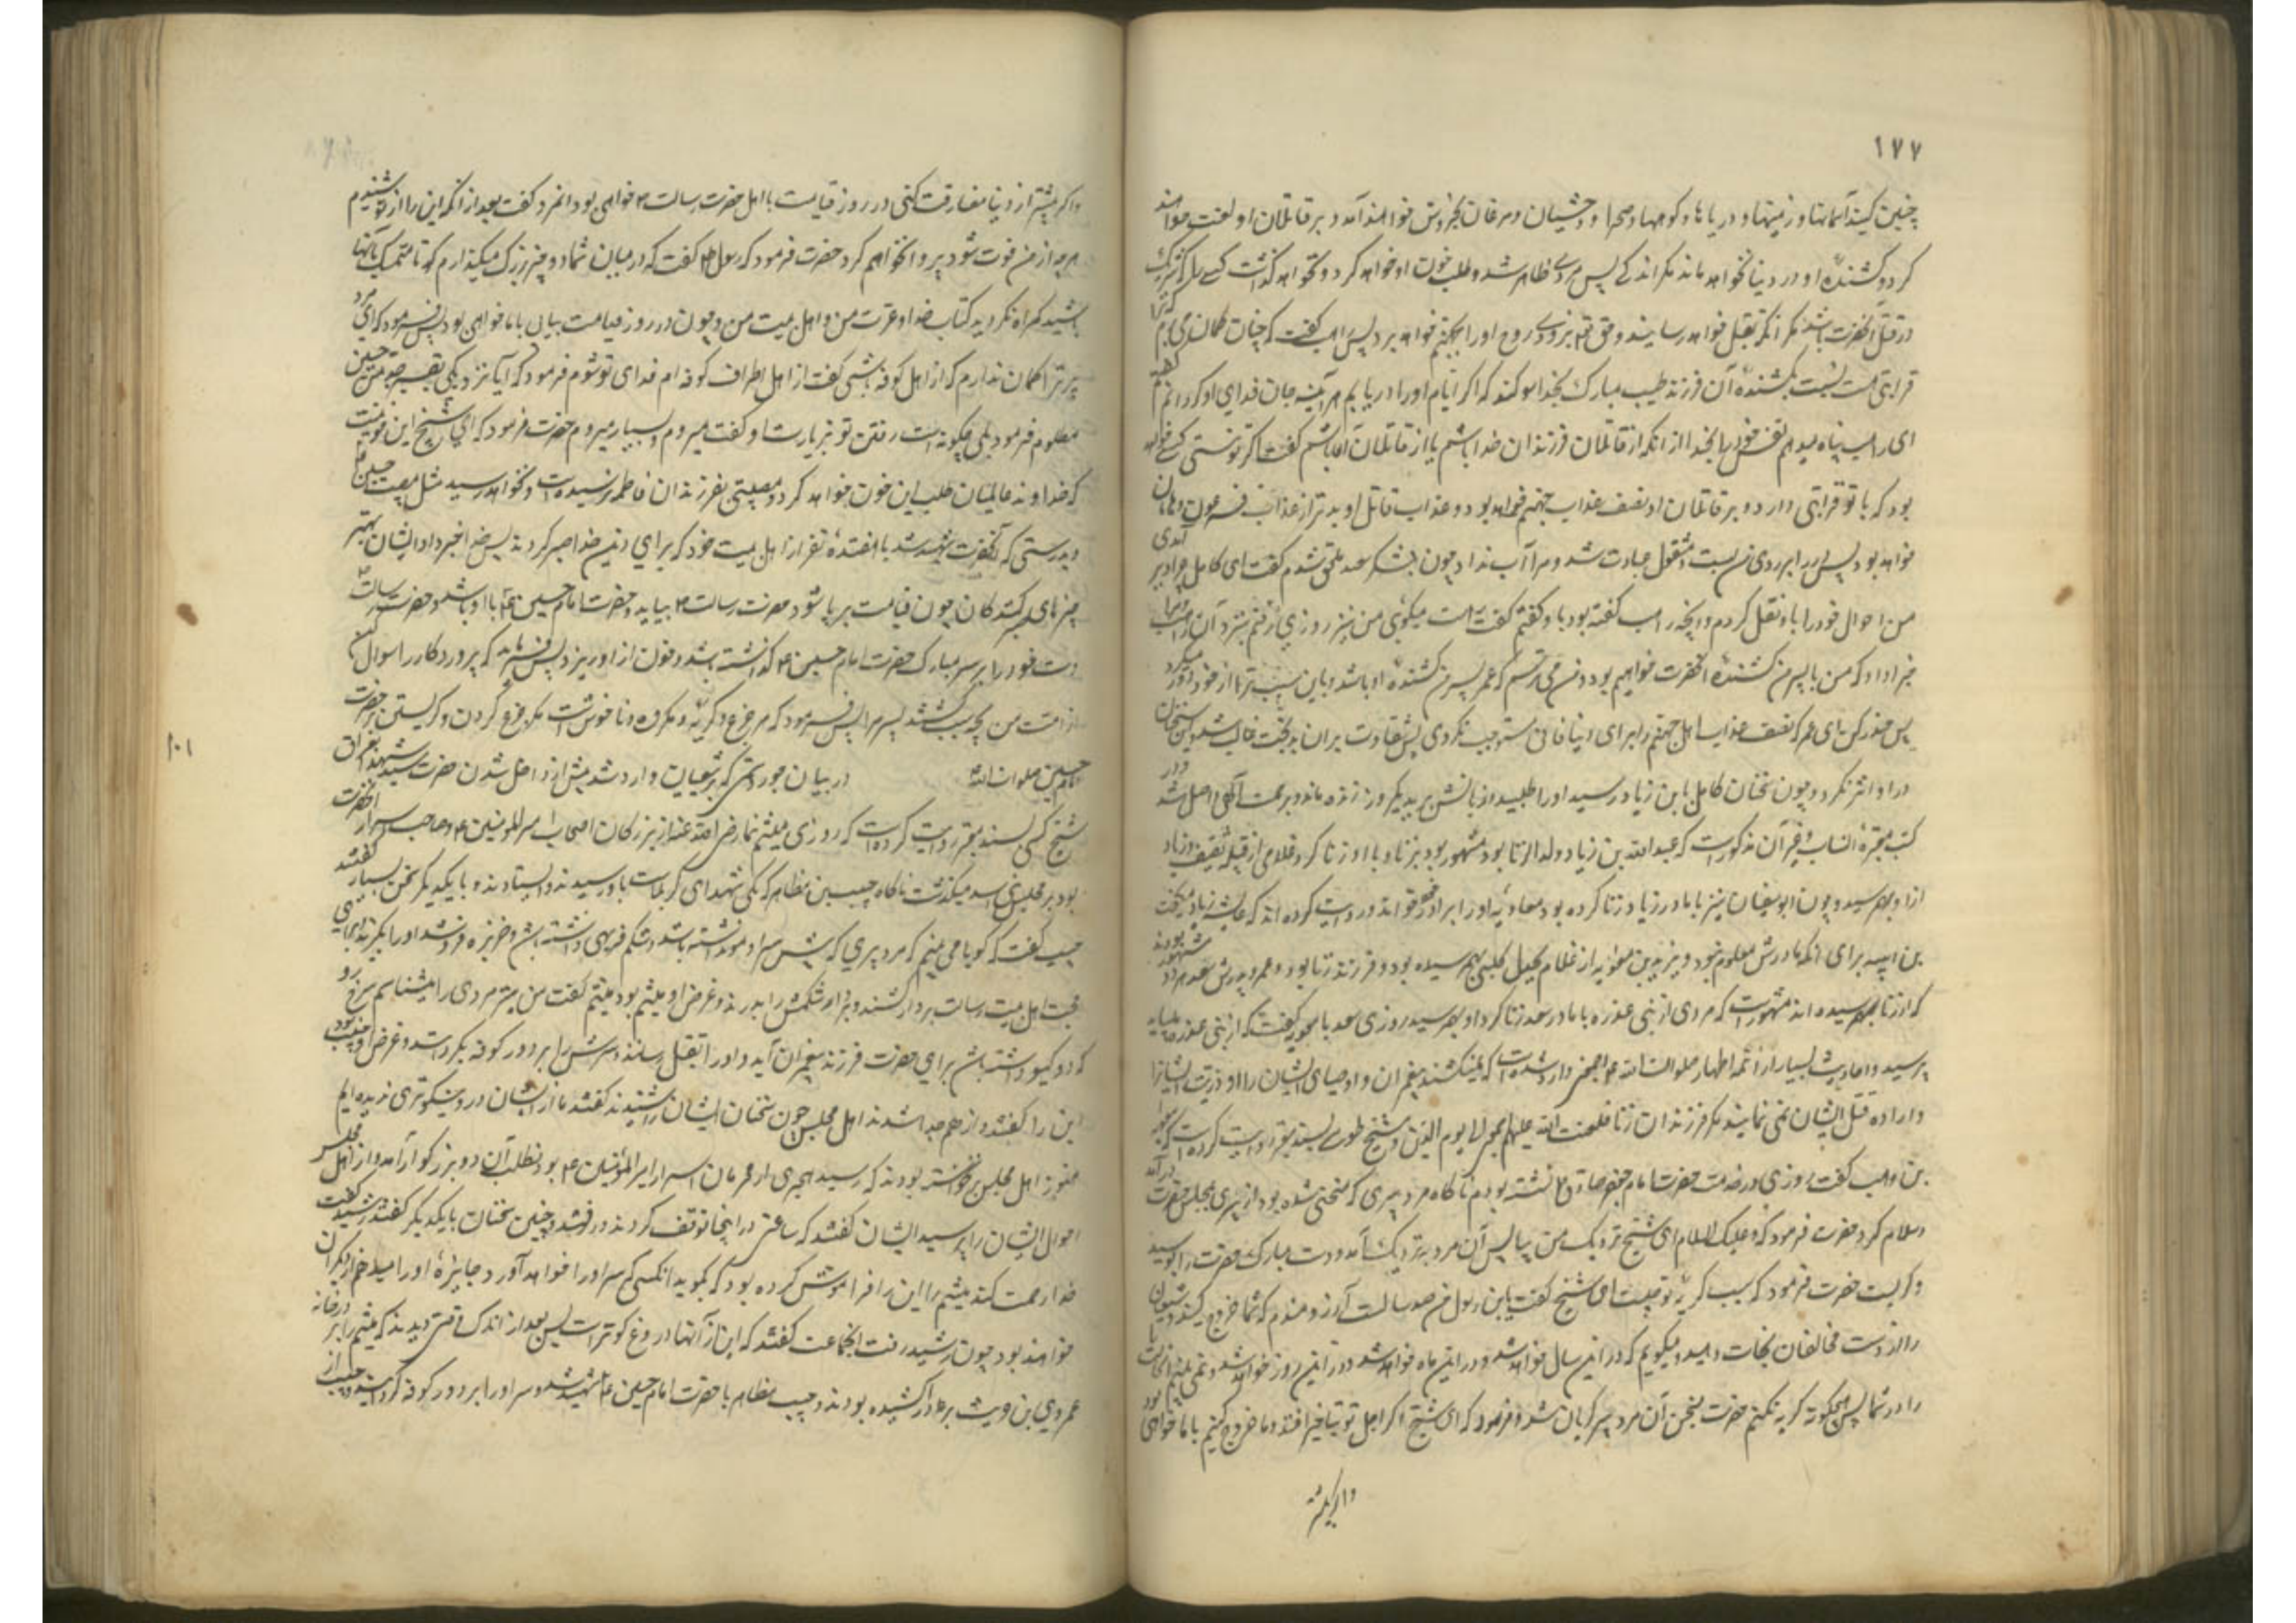 ۱۷۷
چنین کنید آسمانها و زمینها و دریاها و کوهها و صحرا و وحشیان و مرغان بخروش خواهند آمد و بر قاتلان او لعنت خواهند
کرد و کشندهٔ او در دنیا نخواهد ماند مگر اندکی پس مردی ظاهر شد و طلب خون او خواهد کرد و نخواهد گذاشت کسی را که شریک
در قتل آنحضرت باشد مگر آنکه بقتل خواهد رسانید و حق تعالی بزودی روح او را بجهنم خواهد برد پس راهب گفت که چنان گمان می برم که ترا
قرابتی هست نسبت بکشندهٔ آن فرزند طیب مبارک بخدا سوگند که اگر ایام او را دریابم هر آینه جان فدای او کردانم گفتم
ای راهب پناه میدهم نفس خود را بخدا از آنکه از قاتلان فرزندان خدا باشم یا از قاتلان آنها باشم گفت اگر تو نیستی کسی خواهد
بود که با تو قرابتی دارد و بر قاتلان او نصف عذاب جهنم خواهد بود و عذاب قاتل او بدتر از عذاب فرعون و هامان
خواهد بود پس در را بر روی من بست و مشغول عبادت شد و مرا آب نداد چون بلشکر سعد ملحق شدم گفت ای کامل چرا دیر آمدی
من احوال خود را با او نقل کردم و آنچه راهب گفته بود باو گفتم گفت راست میگوئی من نیز روزی رفتم بنزد آن راهب و مرا
خبر داد که من یا پسر من کشندهٔ آنحضرت خواهیم بود و من می ترسم که عمر پسر من کشندهٔ او باشد و باین سبب ترا از خود دور میکرد
پس حذر کن ای عمر که نصف عذاب اهل جهنم را برای دنیا فانی مستوجب نکردی پس شقاوت بر آن بدبخت غالب شد و این سخنان
در او اثر نکرد و چون سخنان کامل بابن زیاد رسید او را طلبید و زبانش برید یکروز زنده ماند و برحمت آلهی واصل شد و در
کتب معتبرهٔ انساب و غیر آن مذکور است که عبد الله بن زیاد ولد الزنا بود مشهور بود بزنا و با او زنا کرد غلامی از قبیلهٔ ثقیف و زیاد
از او بهم رسید و چون ابوسفیان نیز با مادر زیاد زنا کرده بود معاویه او را برادر خود خواند و روایت کرده اند که عایشه زیاد را میگفت
بن ابیه برای آنکه پدرش معلوم نبود و یزید بن معویه از غلام بجدل کلبی بهم رسیده بود و فرزند زنا بود و عمر و پدرش سعد هر دو مشهور بودند
که از زنا بهم رسیده اند مشهور است که مردی از بنی عذره با مادر سعد زنا کرد او بهم رسید روزی سعد با معویه گفت که از بنی عذره
پرسید و احادیث بسیار از ائمه اطهار صلوات الله علیهم اجمعین وارد شده است که نمیکشند پیغمبران و اوصیای ایشان را و ذریت ایشان را
و اراده قتل ایشان نمی نمایند مگر فرزندان زنا فلعنت الله علیهم اجمعین الی یوم الدین و شیخ طوسی بسند معتبر روایت کرده است که
بن وهب گفت روزی در خدمت حضرت امام جعفر صادق ع نشسته بودم ناگاه مرد پیری که منحنی شده بود از پیری بمجلس حضرت در آمد
و سلام کرد حضرت فرمود که و علیک السلام ای شیخ نزدیک من بیا پس آن مرد بنزدیک آمد و دست مبارک حضرت را بوسید
و گریست حضرت فرمود که سبب گریهٔ تو چیست ای شیخ گفت یابن رسول من صد سالست آرزومندم که شما خروج کنید و شیعیان
را از دست مخالفان نجات دهید و میگویم که در این سال خواهد شد و در این ماه خواهد شد و در این روز خواهد شد و نمی بینم آن حالت
را در شما پس چگونه گریه نکنم حضرت بسخن آن مرد پیر گریان شد و فرمود که ای شیخ اگر اجل تو بتاخیر افتد و ما خروج کنیم با ما خواهی بود
و اگر پیشتر
و اگر پیشتر از دنیا مفارقت کنی در روز قیامت با اهل حضرت رسالت خواهی بود آنمرد گفت بعد از آنکه این را از تو شنیدم
هر چه از من فوت شود پروا نخواهم کرد حضرت فرمود که رسول گفت که در میان شما دو چیز بزرگ میگذارم که تا متمسک بآنها
باشید گمراه نگردید کتاب خدا و عترت من و اهل بیت من و چون در روز قیامت بیائی با ما خواهی بود پس فرمود که ای مرد
پیر ترا گمان ندارم که از اهل کوفه باشی گفت از اهل اطراف کوفه ام فدای تو شوم فرمود که آیا نزدیکی بقبر جد من حسین
مظلوم فرمود بلی چگونه است رفتن تو بزیارت او گفت میروم و بسیار میروم حضرت فرمود که ای شیخ این خونیست
که خداوند عالمیان طلب این خون خواهد کرد و مصیبتی بفرزندان فاطمه نرسیده است و نخواهد رسید مثل مصیبت حسین
و بدرستی که آنحضرت شهید شد با هفده نفر از اهل بیت خود که برای دین خدا صبر کردند پس خدا جزا داد ایشان بهتر
جزاهای صبر کنندگان چون قیامت بر پا شود حضرت رسالت بیاید و حضرت امام حسین با او باشد و حضرت رسالت
دست خود را بر سر مبارک حضرت امام حسین گذاشته باشد و خون از او ریزد پس فرماید که پروردگارا سؤال کن
از امت من بچه سبب کشتند پسر مرا پس فرمود که هر جزع و گریه مکروه و ناخوش است مگر جزع کردن و گریستن بر حضرت
امام حسین صلوات الله در بیان جور دیگر که بر شیعیان وارد شد پیش از داخل شدن حضرت سید شهدا بعراق
شیخ کشی بسند معتبر روایت کرده است که روزی میثم تمار رضی الله عنه از بزرگان اصحاب امیر المومنین و صاحب اسرار آنحضرت
بود بر مجلس بنی اسد میگذشت ناگاه حبیب بن مظاهر که یکی شهدای کربلاست باو رسید و ایستادند و با یکدیگر سخن بسیار گفتند
حبیب گفت که گویا می بینم که مرد پیری که پیش سر او مو نداشته باشد و شکم فربهی داشته باشد و خربزه فروشد او را بگیرند برای
محبت اهل بیت رسالت بر دار کشند و بر دار شکمش را بدرند و غرض او میثم بود میثم گفت من نیز مردی را میشناسم سرخ رو
که دو گیسو داشته باشد برای حضرت فرزند پیغمبر آن آید و او را بقتل رسانند و سرش را بر دور کوفه بگردانند و غرض او حبیب بود
این را گفتند و از هم جدا شدند اهل مجلس چون سخنان ایشان را شنیدند گفتند ما از ایشان دروغگوتری ندیده ایم
هنوز اهل مجلس برنخواسته بودند که رشید هجری از محرمان اسرار امیر المؤمنین بود بطلب آن دو بزرگوار آمد و از اهل مجلس
احوال ایشان را پرسید ایشان گفتند که ساعتی در اینجا توقف کردند و رفتند و چنین سخنان با یکدیگر گفتند رشید گفت
خدا رحمت کند میثم را این را فراموش کرده بود که بگوید آنکسی که سر او را خواهد آورد جایزهٔ او را صد درهم از دیگران
خواهند بود چون رشید رفت آنجماعت گفتند که این از آنها دروغ گوتر است پس بعد از اندک وقتی دیدند که میثم را بر در خانه
عمرو بن حریث بر دار کشیده بودند و حبیب مظاهر با حضرت امام حسین شهید شد و سر او را بر دور کوفه گردانیدند